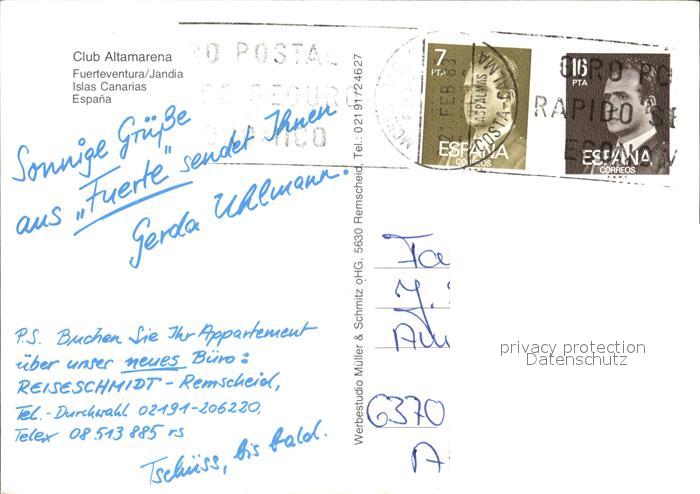 Club Altamarena
Fuerteventura/Jandia
Islas Canarias
España
Sonnige Grüße
aus „Fuerte" sendet Ihnen
Gerda Uhlmann.
P.S. Buchen Sie Ihr Appartement
über unser neues Büro:
REISESCHMIDT - Remscheid,
Tel.-Durchwahl 02191-206220,
Telex 08 513 885 rs
Tschüss, bis bald.
Werbestudio Müller & Schmitz oHG, 5630 Remscheid, Tel.: 021 91/24627
GIRO POSTAL
21 FEB 83
LAS PALMAS
COSTA-CALMA
7
PTA
ESPAÑA
CORREOS
16
PTA
ESPAÑA
CORREOS
GIRO PO
RAPIDO SE
ECONOM
6370
privacy protection
Datenschutz